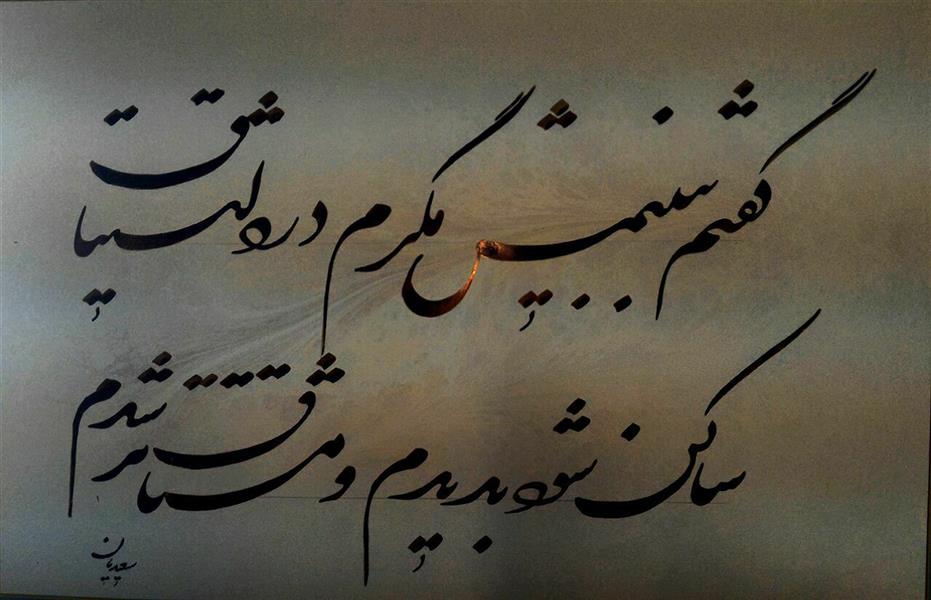 گفتم ببینمش مگرم درد اشتیاق
ساکن شود بدیدم و مشتاقتر شدم